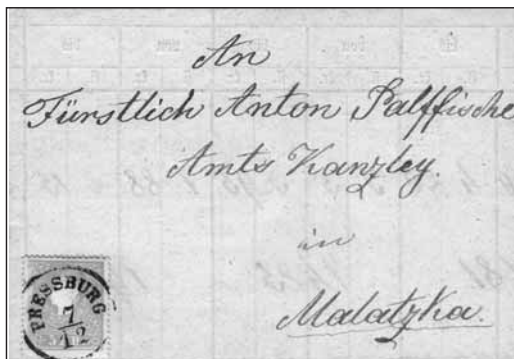 An
Fürstlich Anton Palffische
Amts Kanzley.
in
Malatzka.
PRESSBURG
7
12